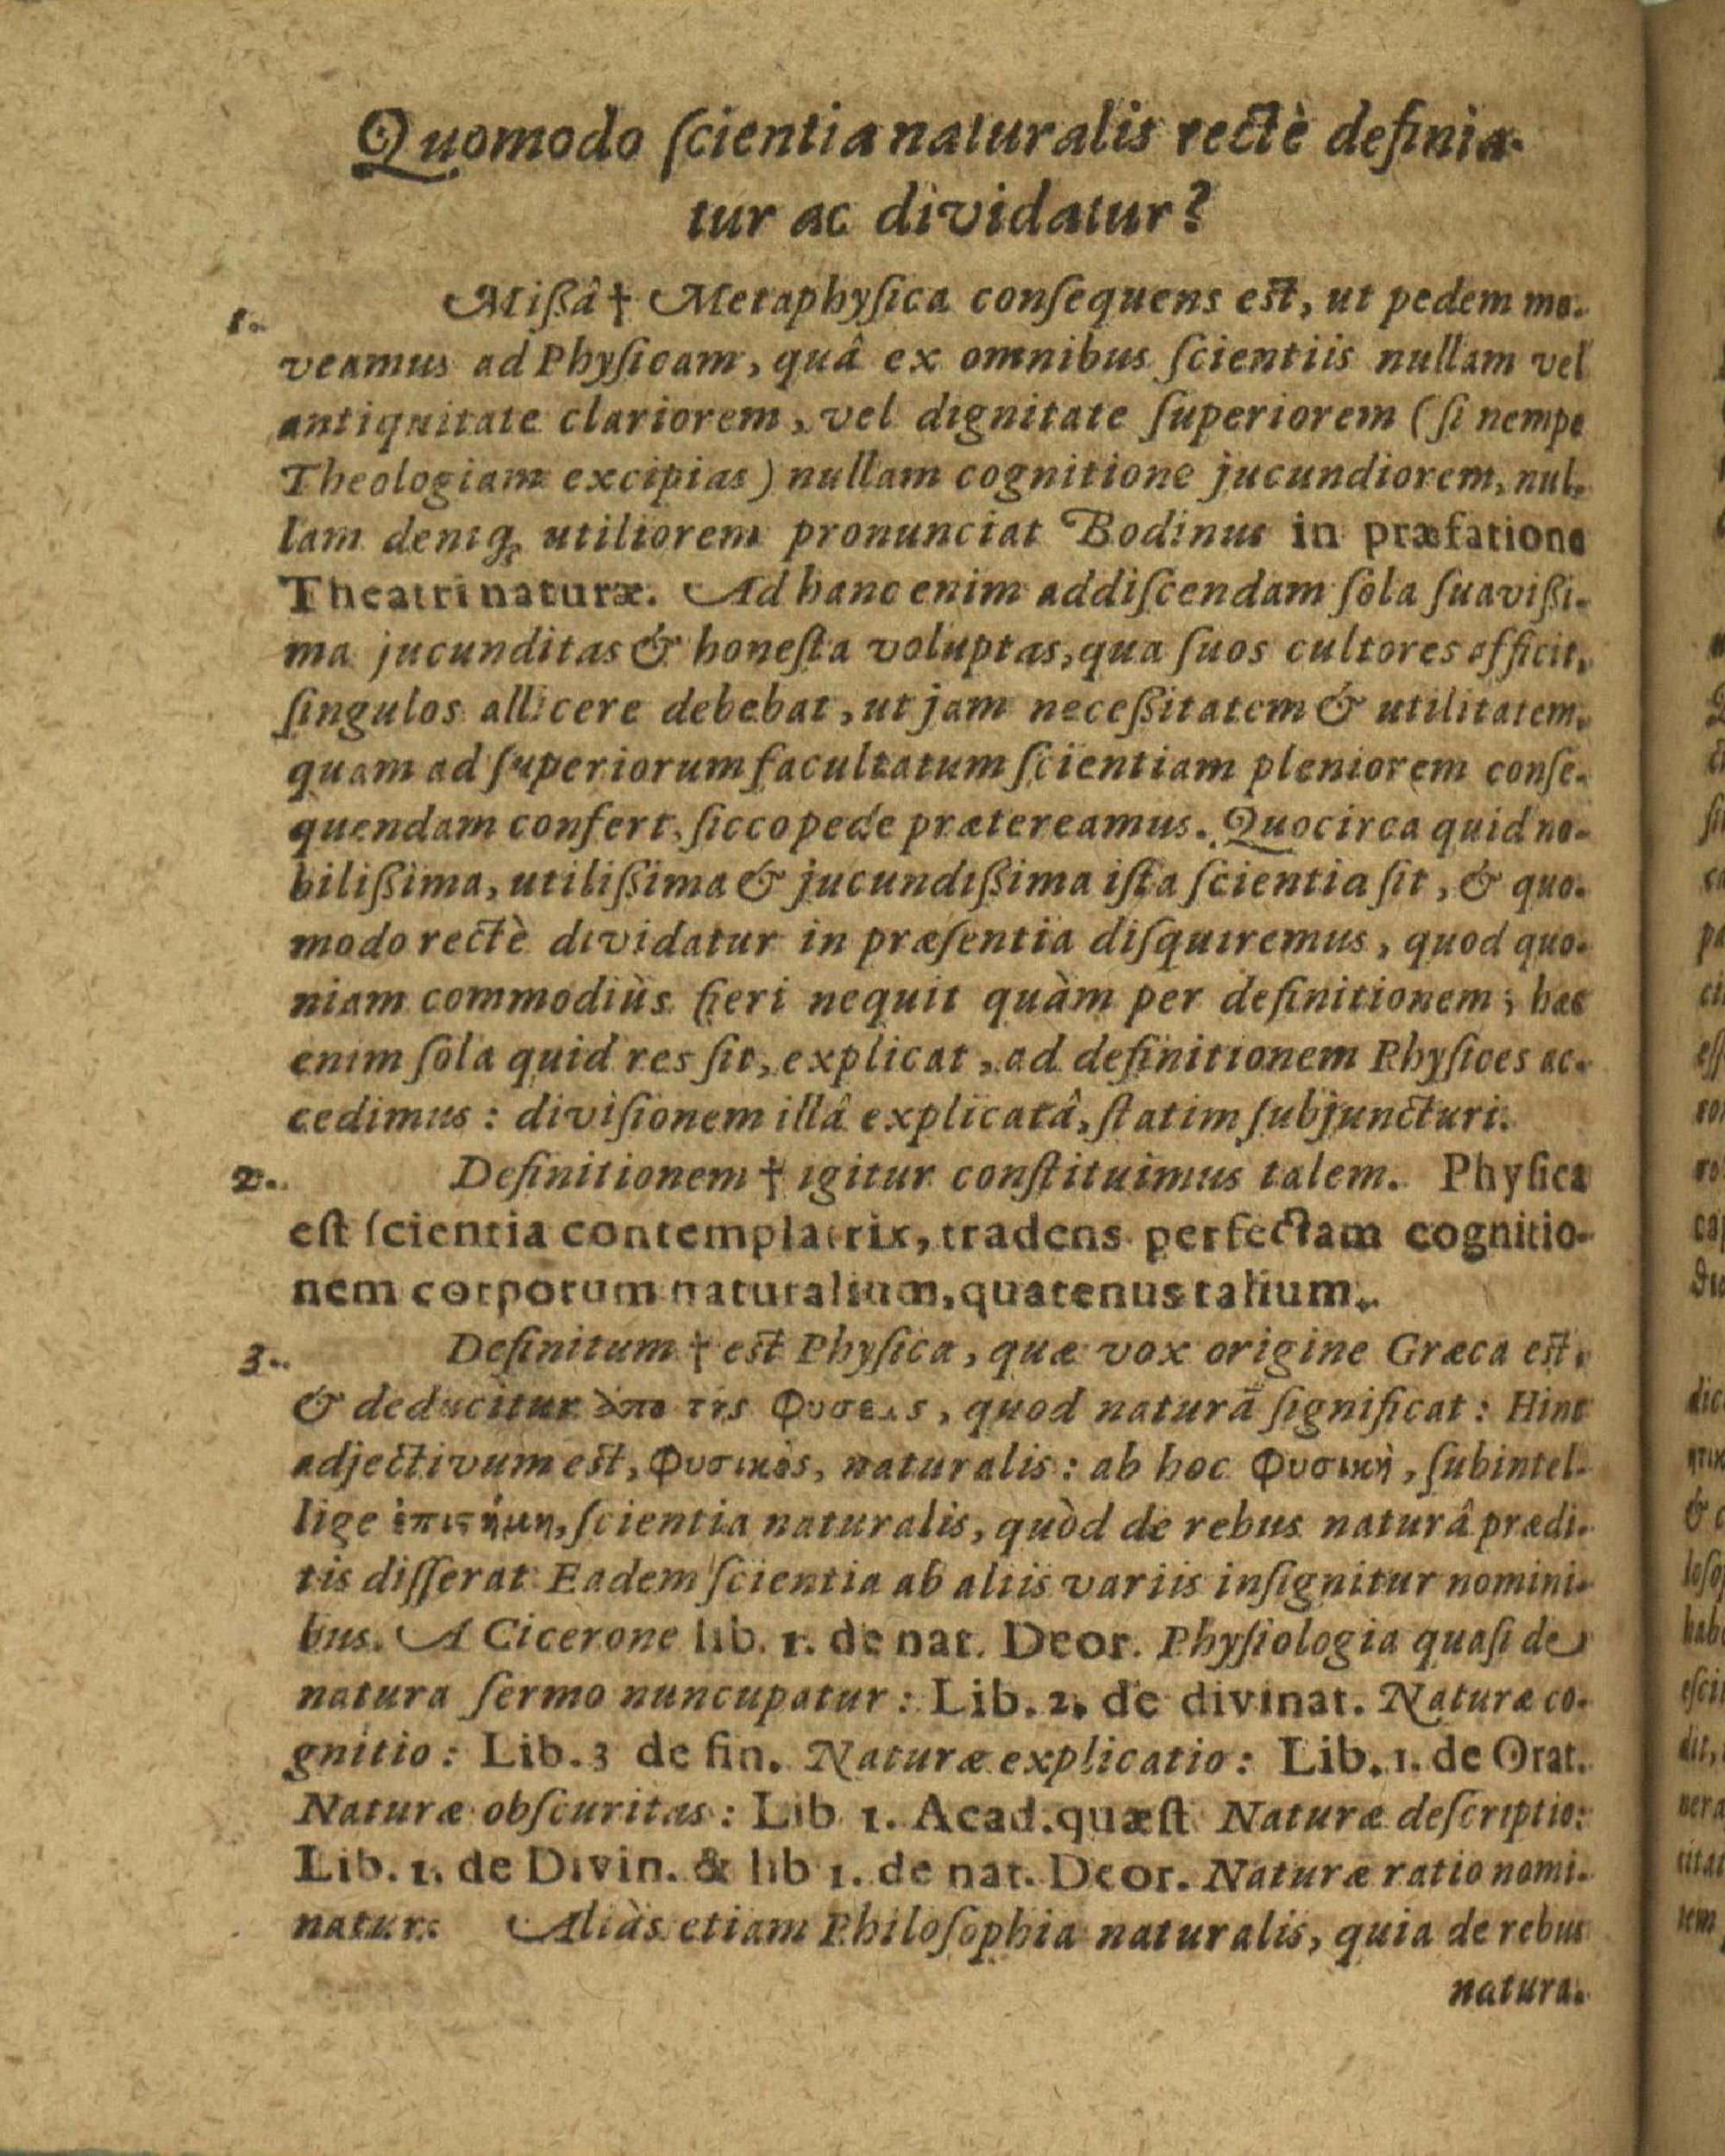 Quomodo ſcientia naturalis rectè definia-
tur ac dividatur?
1. Mißâ † Metaphyſica conſequens eſt, ut pedem mo-
veamus ad Phyſicam, quâ ex omnibus ſcientiis nullam vel
antiquitate clariorem, vel dignitate ſuperiorem (ſi nempe
Theologiam excipias) nullam cognitione jucundiorem, nul-
lam deniq; utiliorem pronunciat Bodinus in præfatione
Theatri naturæ. Ad hanc enim addiſcendam ſola ſuavißi-
ma jucunditas & honeſta voluptas, qua ſuos cultores afficit,
ſingulos allicere debebat, ut jam neceßitatem & utilitatem,
quam ad ſuperiorum facultatum ſcientiam pleniorem conſe-
quendam confert, ſicco pede prætereamus. Quocirca quid no-
bilißima, utilißima & jucundißima iſta ſcientia ſit, & quo-
modo rectè dividatur in præſentia diſquiremus, quod quo-
niam commodiùs fieri nequit quàm per definitionem; hæc
enim ſola quid res ſit, explicat, ad definitionem Phyſices ac-
cedimus: diviſionem illâ explicatâ, ſtatim ſubjuncturi.
2. Definitionem † igitur conſtituimus talem. Phyſica
eſt ſcientia contemplatrix, tradens perfectam cognitio-
nem corporum naturalium, quatenus talium.
3. Definitum † eſt Phyſica, quæ vox origine Græca eſt,
& deducitur ἀπο τῆς Φυσεως, quod naturã ſignificat: Hinc
adjectivum eſt, Φυσικὸς, naturalis: ab hoc Φυσικὴ, ſubintel-
lige ἐπιϛήμη, ſcientia naturalis, quòd de rebus naturâ prædi-
tis diſſerat Eadem ſcientia ab aliis variis inſignitur nomini-
bus. A Cicerone lib. 1. de nat. Deor. Phyſiologia quaſi de
natura ſermo nuncupatur: Lib. 2. de divinat. Naturæ co-
gnitio: Lib. 3 de fin. Naturæ explicatio: Lib. 1. de Orat.
Naturæ obſcuritas: Lib 1. Acad. quæſt Naturæ deſcriptio:
Lib. 1. de Divin. & lib 1. de nat. Deor. Naturæ ratio nomi-
natur: Aliàs etiam Philoſophia naturalis, quia de rebus
natura-